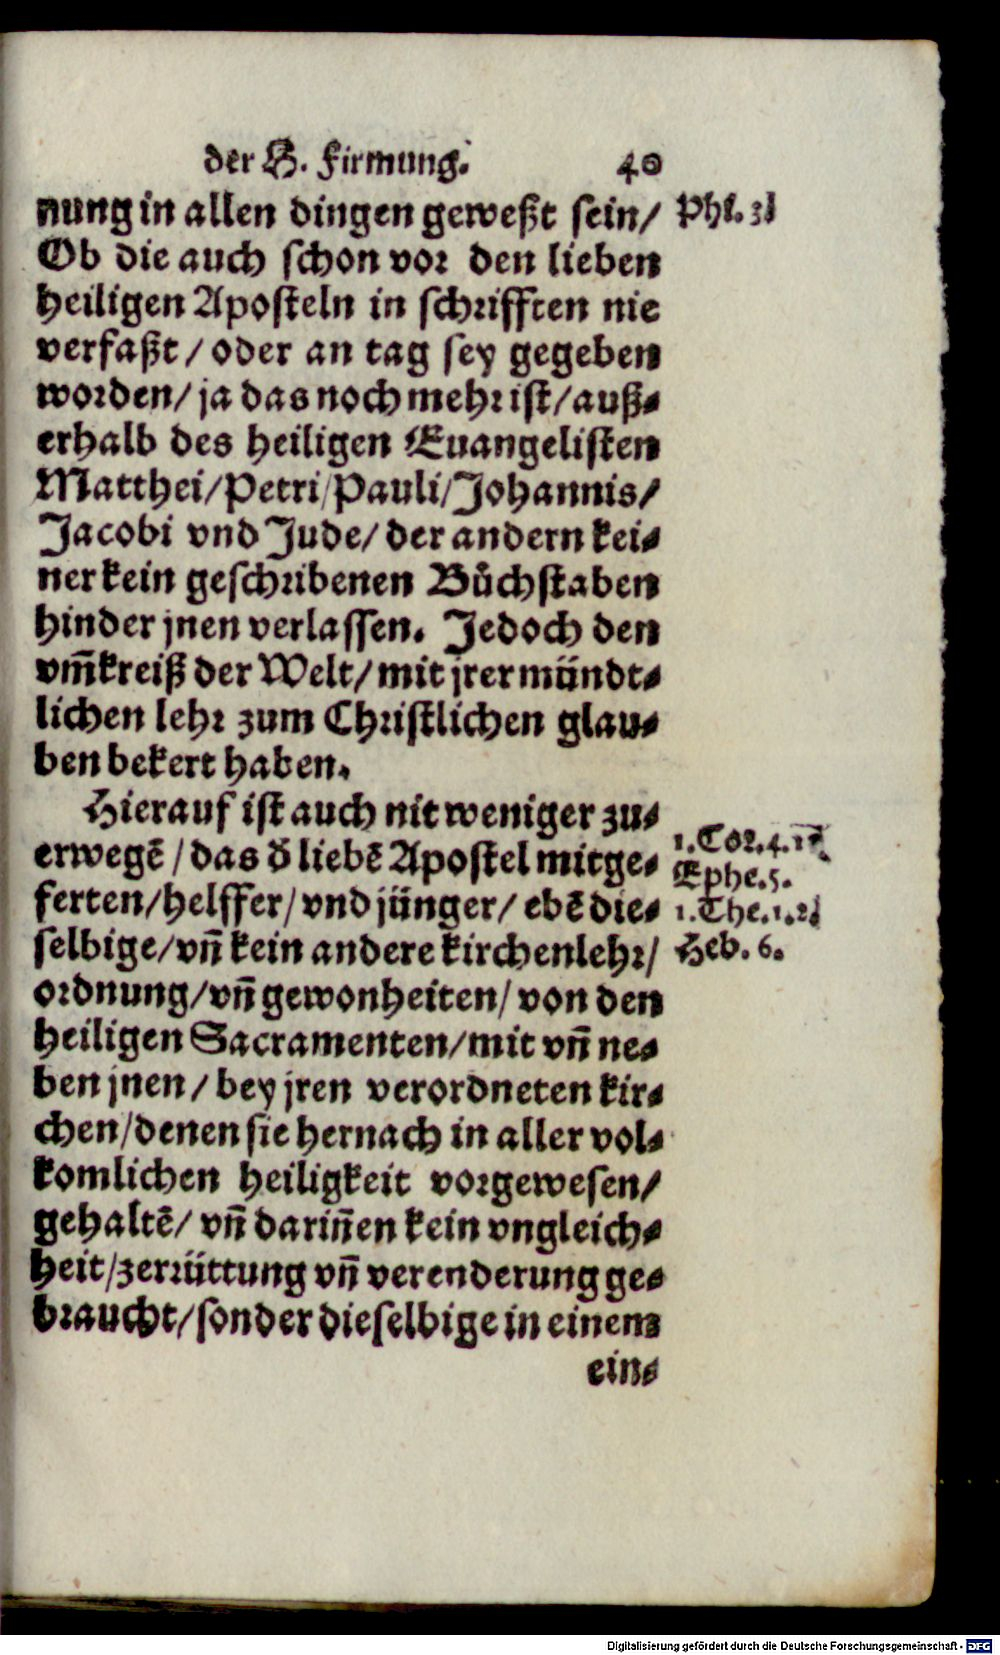 der H. Firmung. 40
nung in allen dingen geweßt sein/ Phl. 3.
Ob die auch schon vor den lieben
heiligen Aposteln in schrifften nie
verfaßt / oder an tag sey gegeben
worden/ ja das noch mehr ist/ auß⸗
erhalb des heiligen Euangelisten
Matthei/Petri/Pauli/Johannis/
Jacobi vnd Jude/ der andern kei⸗
ner kein geschribenen Bůchstaben
hinder jnen verlassen. Jedoch den
vm̃kreiß der Welt/ mit jrer mündt⸗
lichen lehr zum Christlichen glau⸗
ben bekert haben.
Hierauf ist auch nit weniger zu⸗
erwegē / das d̄ liebē Apostel mitge⸗
ferten/helffer/ vnd jünger/ ebē die⸗
selbige/vñ kein andere kirchenlehr/
ordnung/vñ gewonheiten/ von den
heiligen Sacramenten/mit vñ ne⸗
ben jnen / bey jren verordneten kir⸗
chen/denen sie hernach in aller vol⸗
komlichen heiligkeit vorgewesen/
gehaltē/ vñ dariñen kein vngleich⸗
heit/zerrüttung vñ verenderung ge⸗
braucht/sonder dieselbige in einem
ein⸗
1. Cor. 4.
Ephe. 5.
1. The. 1. 2.
Heb. 6.
Digitalisierung gefördert durch die Deutsche Forschungsgemeinschaft - DFG